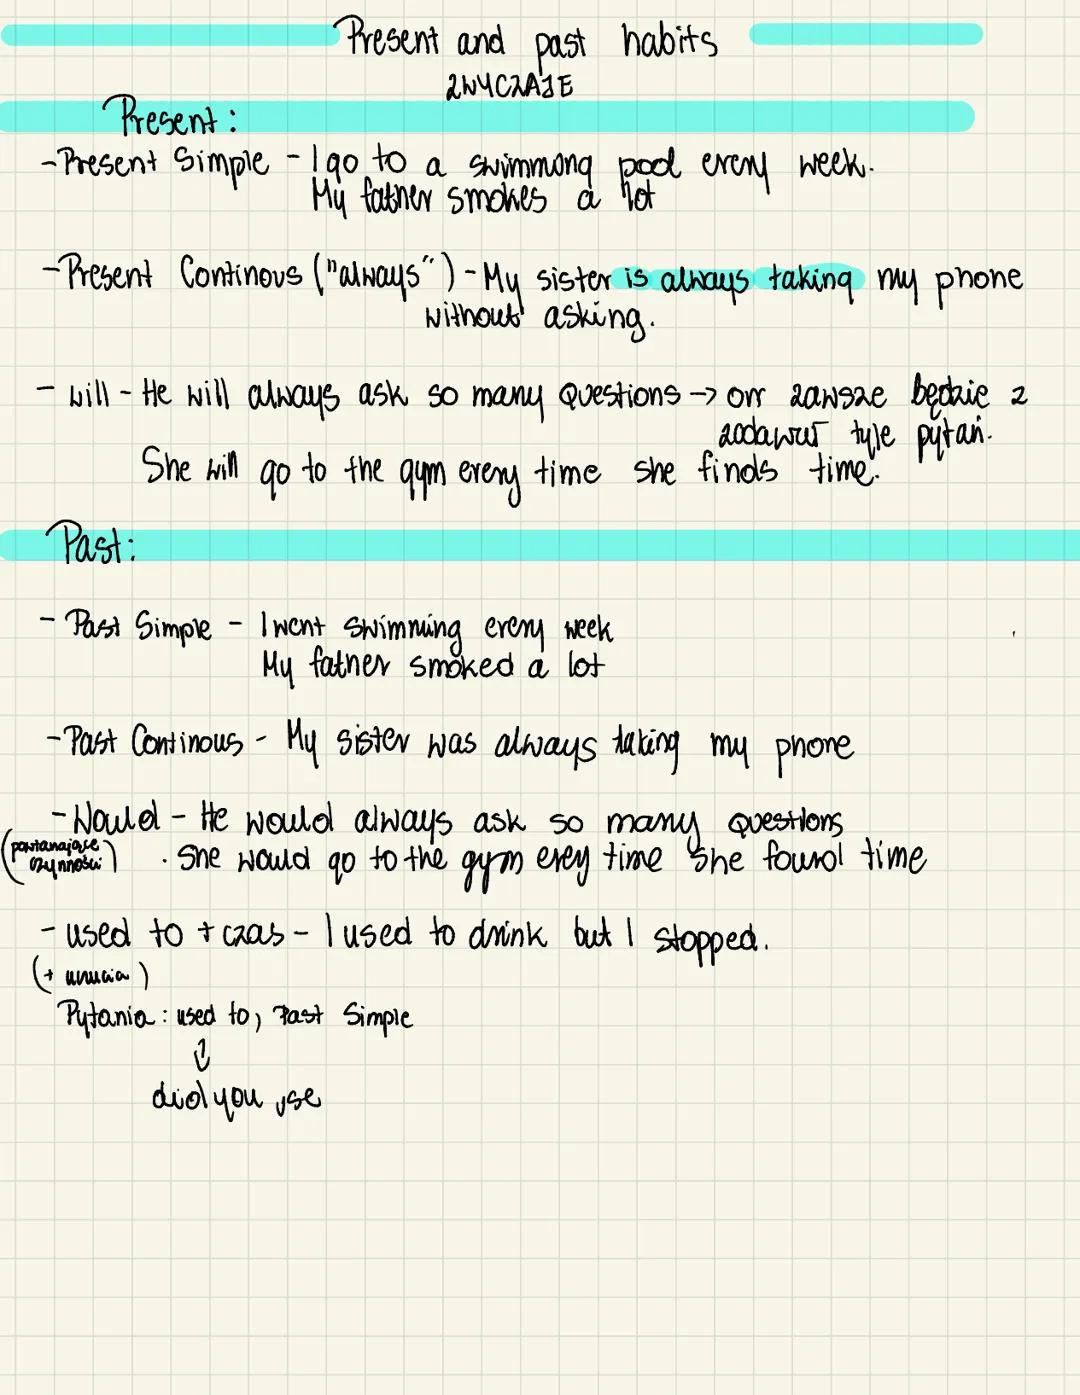 Present and past habits
ZWYCZAJE
Present:
- Present Simple - I go to a swimmong pool every week.
My father smokes a lot
- Present Continous ("always") - My sister is always taking my phone
without asking.
- will - He will always ask so many questions → on zawsze będzie z
zadawał tyle pytań.
She will go to the gym every time she finds time.
Past:
- Past Simple - I went swimming every week
My father smoked a lot
- Past Continous - My sister was always taking my phone
- Would - He would always ask so many questions
(powtarzające czynności) · She would go to the gym evey time she found time
- used to + czas - I used to drink but I stopped.
(+ )
Pytania: used to, Past Simple
↓
did you use